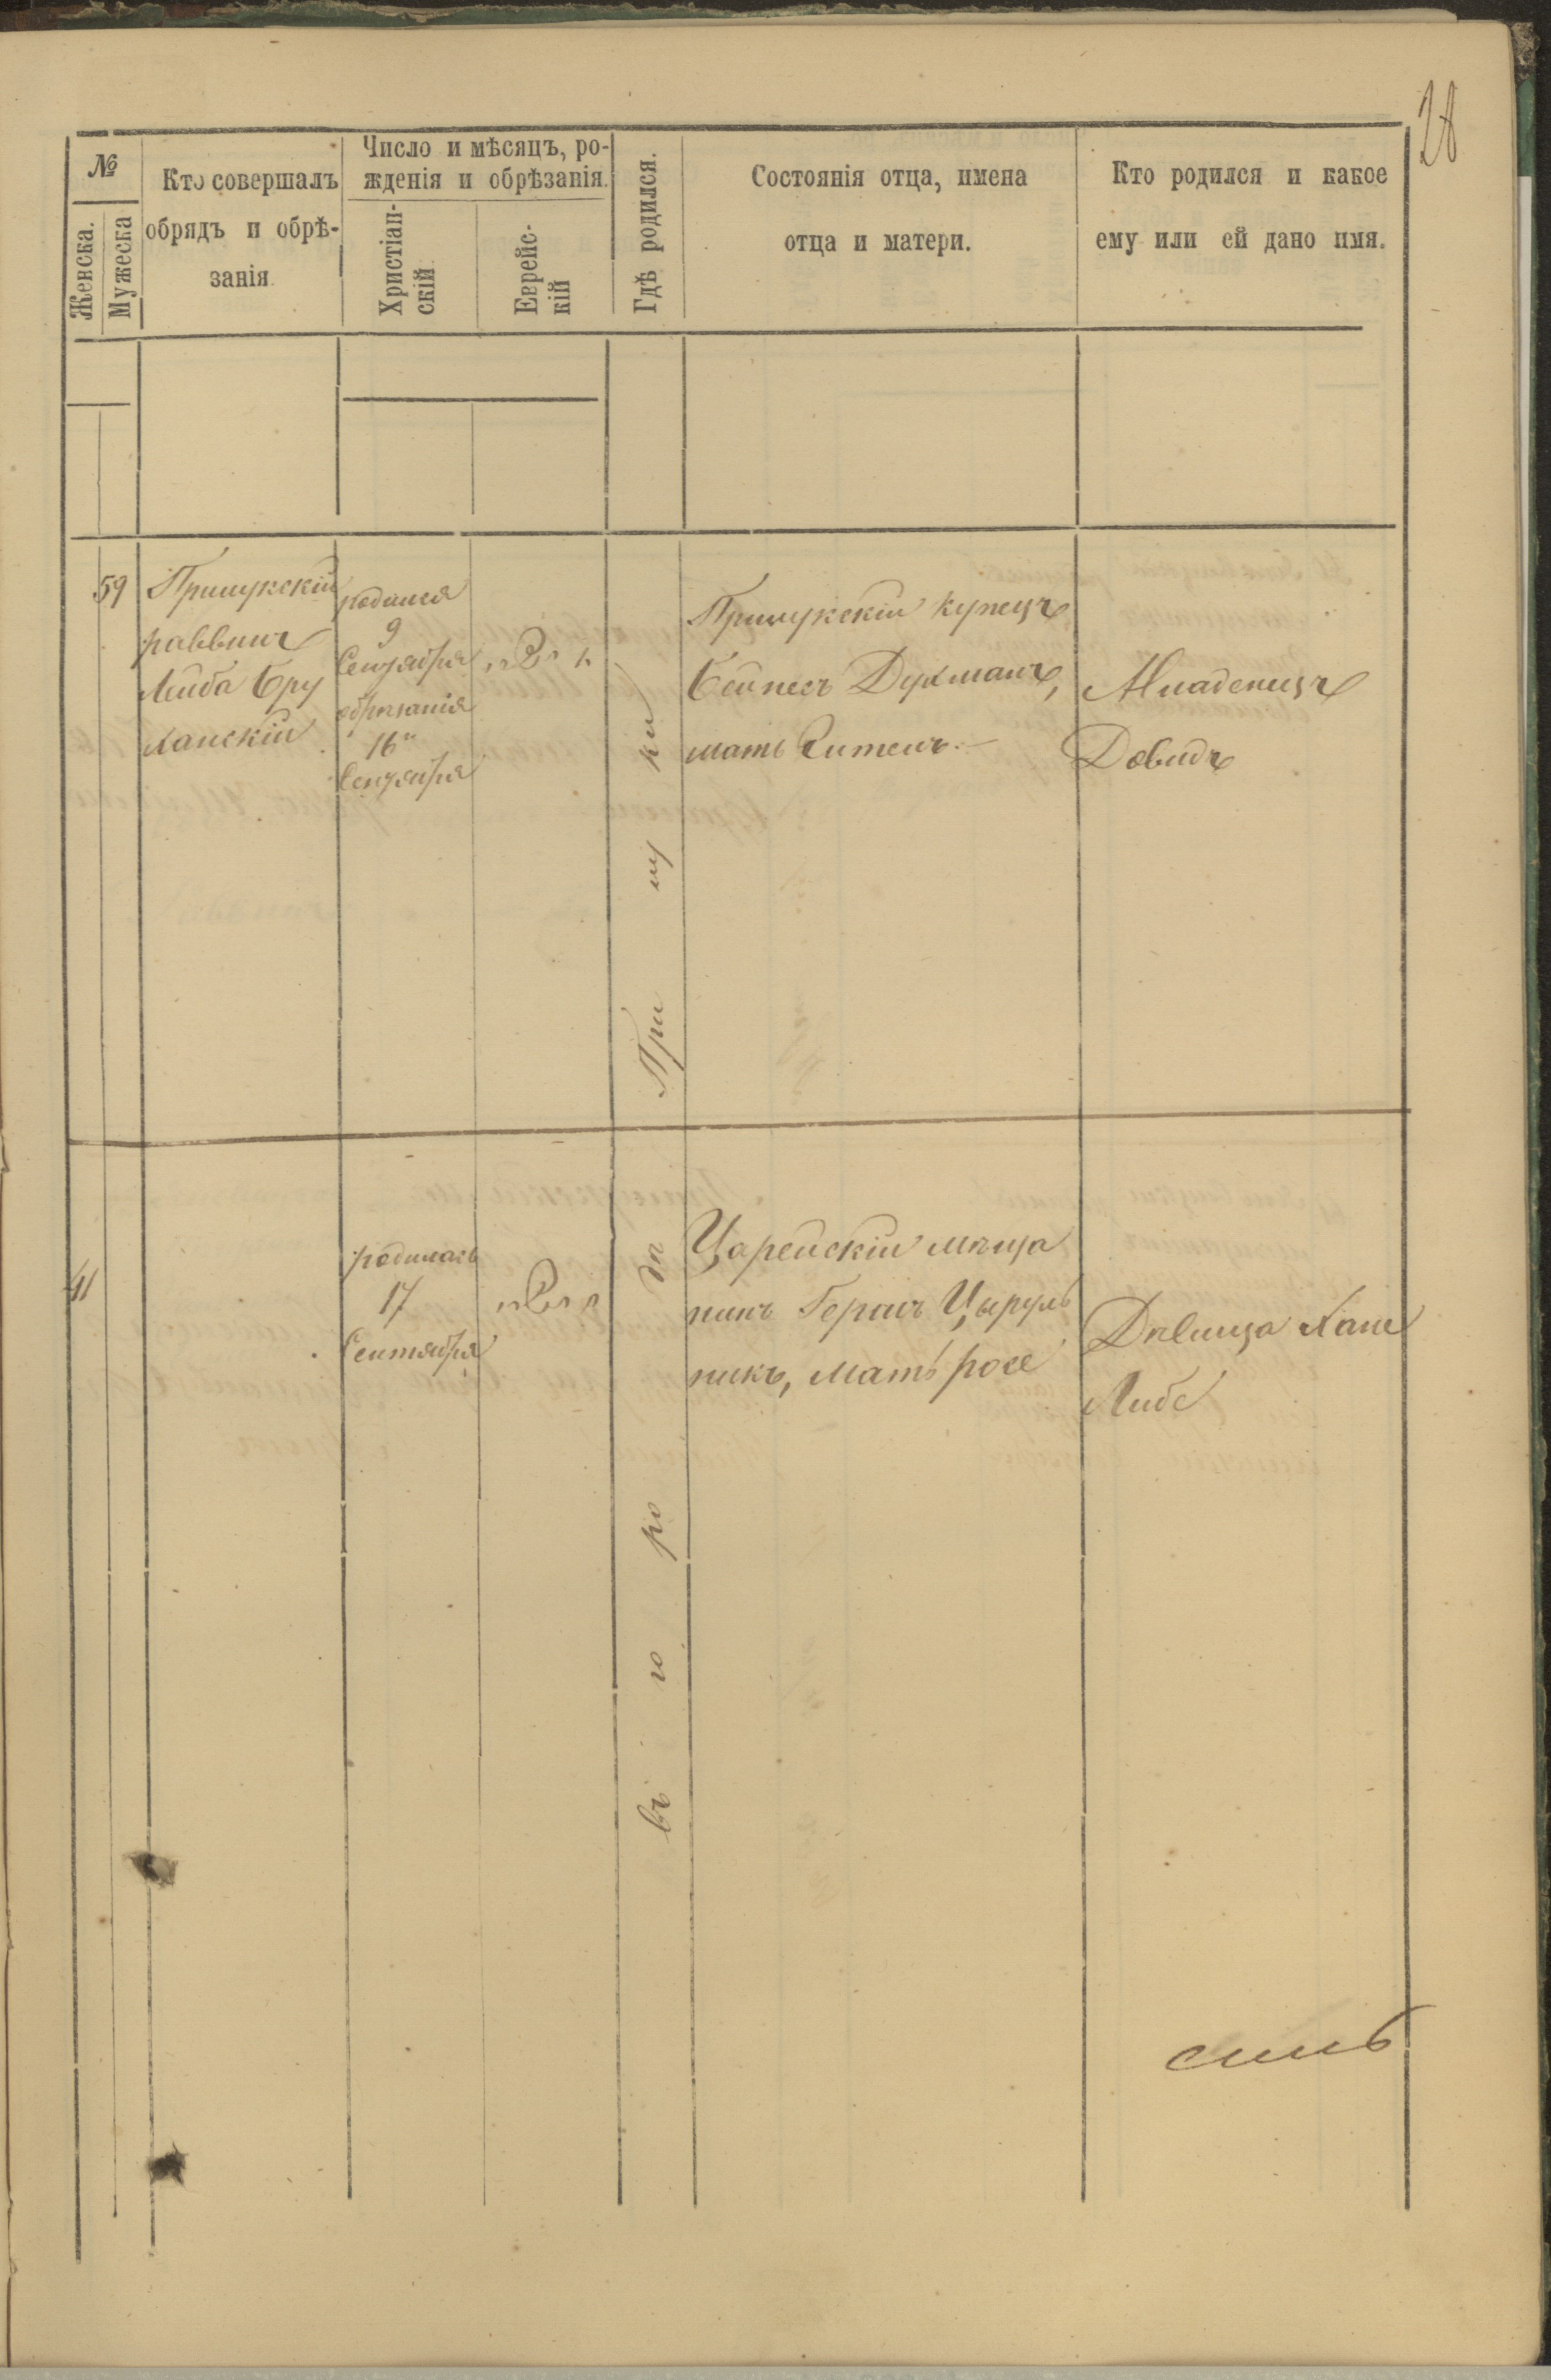 28
№
Женска.
Мужеска
Кто совершалъ
обрядъ и обрѣ-
занія
Число и мѣсяцъ, ро-
жденія и обрѣзанія.
Христіан-
скій
Еврейс-
кій
Гдѣ родился.
Состоянія отца, имена
отца и матери.
Кто родился и какое
ему или ей дано имя.
59
Прилукскій
раввинъ
Лейба Бру
ханскій
родился
9
Сентября
обрѣзанія
16
Сентября
Прилукскій купецъ
Бейнесъ Духманъ,
мать Гителъ.
Младенецъ
Довидъ
41
родилась
17
Сентября
въ го ро дѣ При лу ки
Царейскій мѣща
нинъ Герш Цыруль
никъ, мать Росе
Дѣвица Хане
Либе